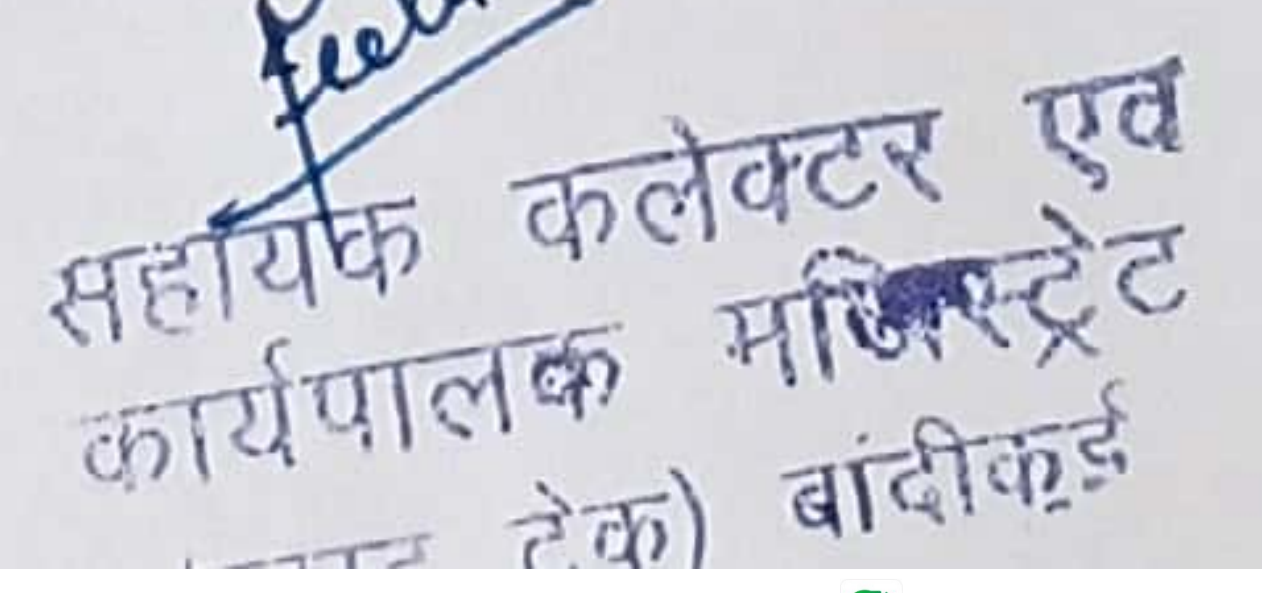 सहायक कलेक्टर एव
कार्यपालक मजिस्ट्रेट
टेक) बांदीकुई